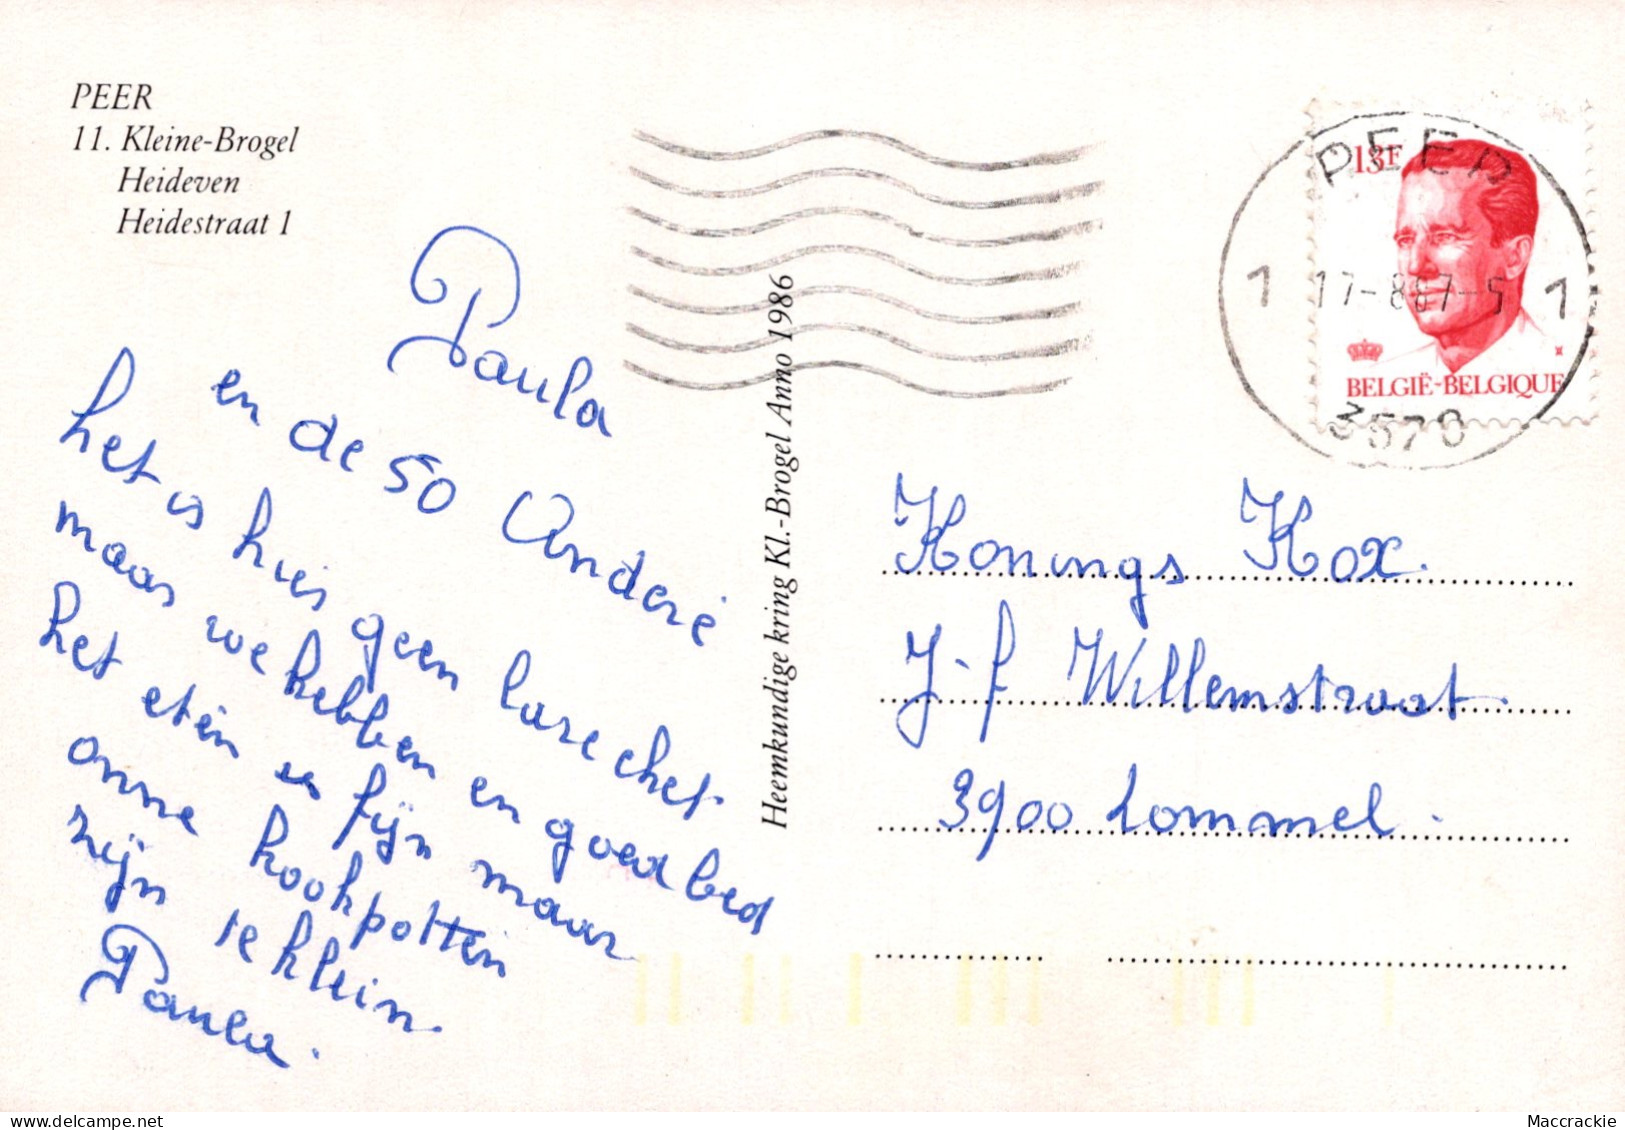 PEER
11. Kleine-Brogel
Heideven
Heidestraat 1
Paula
en de 50 Anderé
het is hier geen luxe chet
maar we hebben en goed bed
het etén is fijn maar
onne kookpotten
zijn te klein
Paula.
Heemkundige kring Kl.-Brogel Anno 1986
PEER
13F
1 17-8 87-5 1
BELGIË-BELGIQUE
3570
Konings Kox.
J-f Willemstraat.
3900 Lommel.
Maccrackie